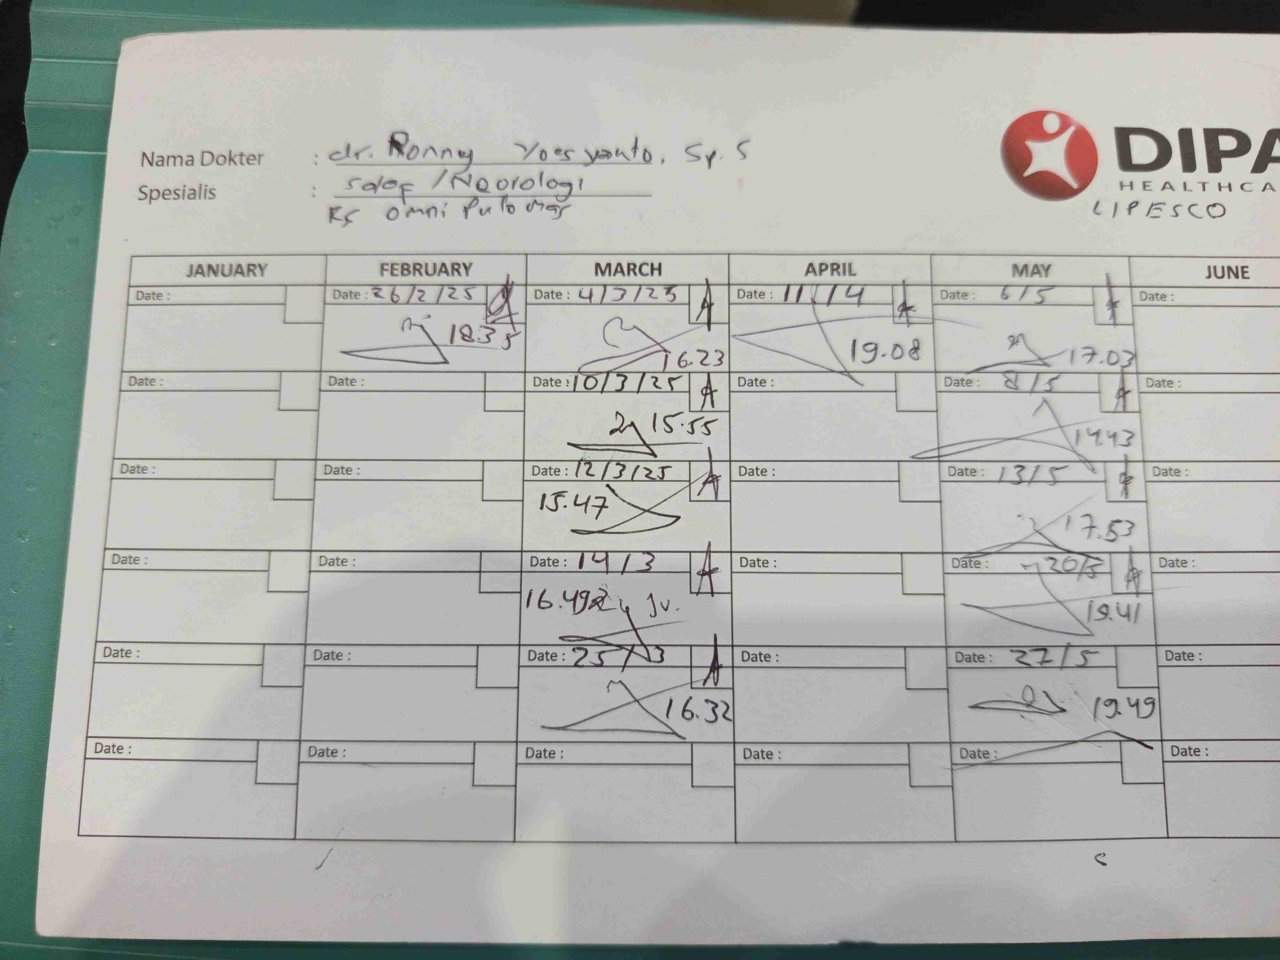 Nama Dokter : dr. Ronny Yoesyanto, Sp. S
Spesialis : Saraf /Neorologi
RS Omni Pulomas
DIPA
HEALTHCA
LIPESCO
JANUARY FEBRUARY MARCH APRIL MAY JUNE
Date : Date : 26/2/25 Date : 4/3/25 Date : 11/4 Date : 6/5 Date :
18.35 16.23 19.08 17.03
Date : Date : Date : 10/3/25 Date : Date : 8/5 Date :
15.55 14.43
Date : Date : Date : 12/3/25 Date : Date : 13/5 Date :
15.47 17.53
Date : Date : Date : 14/3 Date : Date : 20/5 Date :
16.49 19.41
Date : Date : Date : 25/3 Date : Date : 27/5 Date :
16.32 19.49
Date : Date : Date : Date : Date : Date :